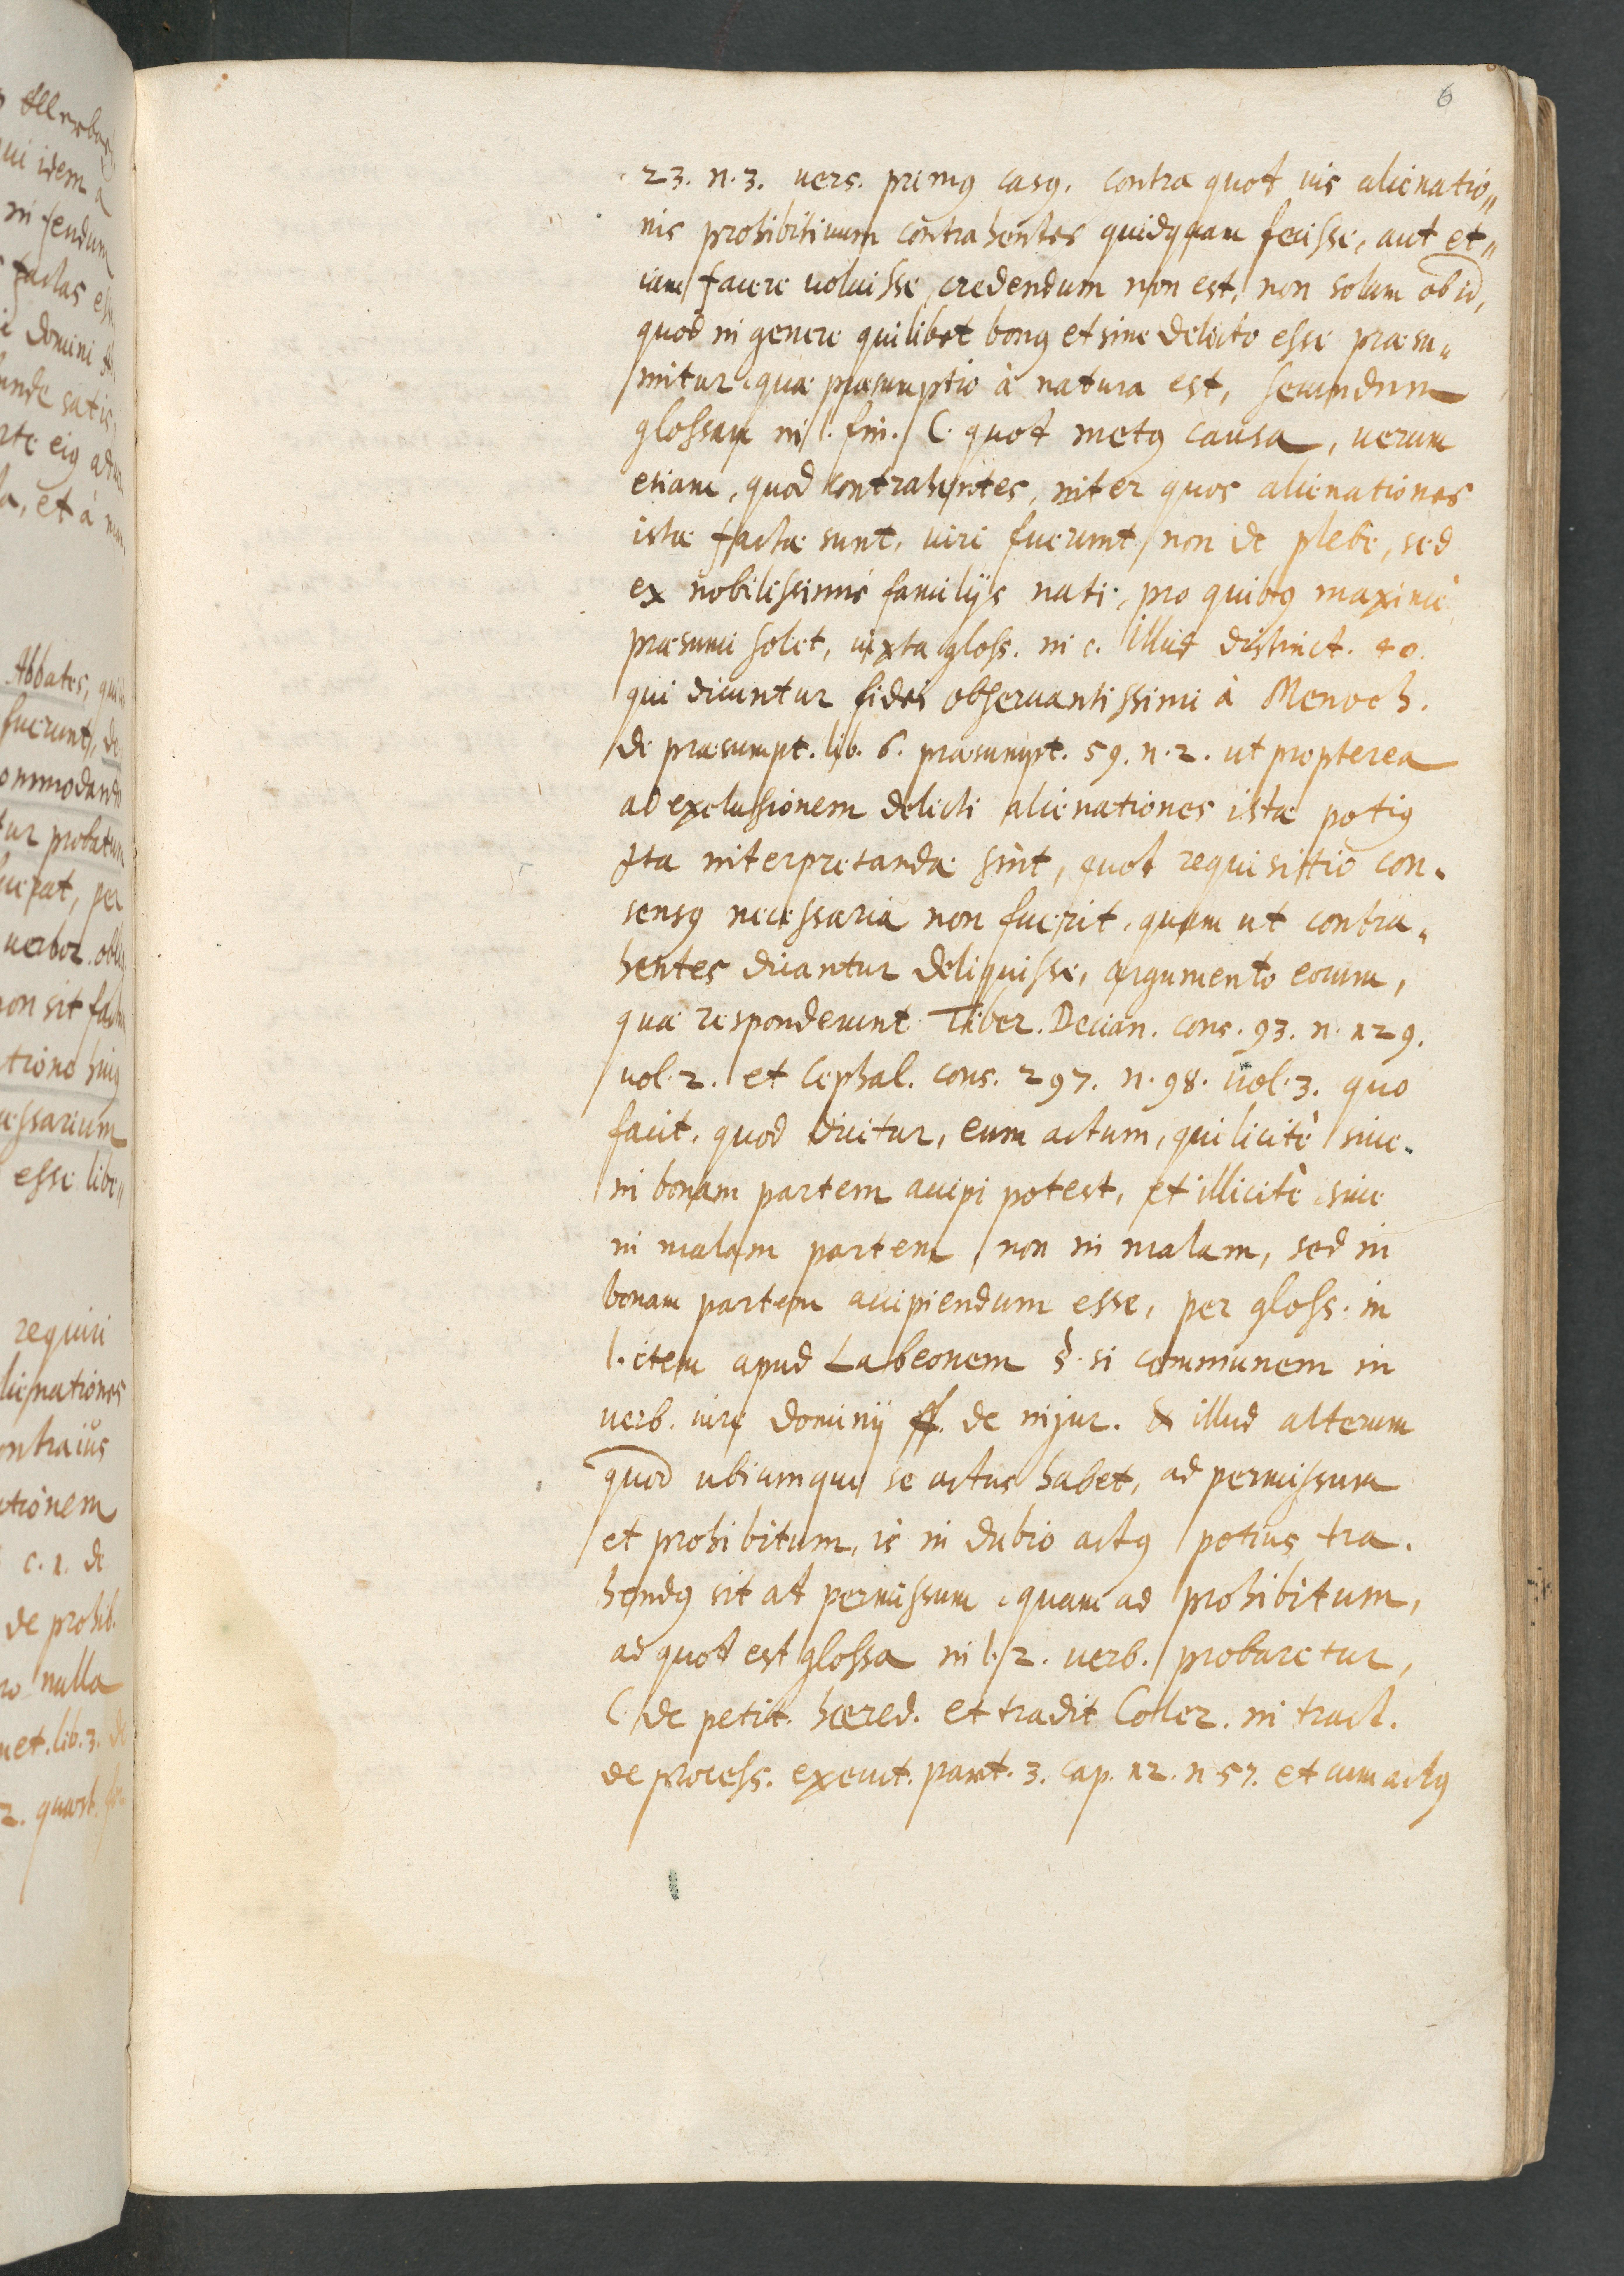 6
23. n. 3. vers. primus casus. contra quot ius alienatio„
nis prohibitiuum contrahentes quidquam fecisse, aut et„
iam facere voluisse credendum non est, non solum ob id,
quod in genere quilibet bonus et sine delicto esse praesu„
mitur, quae praesumptio à natura est, secundum
glossam in l. fin. C. quot metus causa, uerum
etiam, quod contrahentes, inter quos alienationes
istae factae sunt, uiri fuerunt, non de plebe, sed
ex nobilissimis familijs nati, pro quibus maximè
praesumi solet, iuxta gloss. in c. illud distinct. 40.
qui dicuntur fidei obseruantissimi à Menoch.
de praesumpt. lib. 6. praesumpt. 59. n. 2. ut propterea
ad exclusionem delicti alienationes istae potius
ita interpretandae sint, quot requisitio con„
sensus necessaria non fuerit, quam ut contra„
hentes dicantur deliquisse, argumento eorum,
quae responderunt Tiber. Decian. cons. 93. n. 129.
uol. 2. et Cephal. cons. 297. n. 98. uol. 3. quo
facit, quod dicitur, eum actum, qui licitè siue
in bonam partem accipi potest, et illicitè siue
in malam partem non in malam, sed in
bonam partem accipiendum esse, per gloss. in
l. item apud Labeonem §. si communem in
uerb. iure dominij ff. de injur. & illud alterum
quod ubicumque se actus habet, ad permissum
et prohibitum, is in dubio actus potius tra„
hendus sit at permissum, quam ad prohibitum,
ad quot est glossa in l. 2. uerb. probaretur,
C. de petit. haered. et tradit Coller. in tract.
de process. execut. part. 3. cap. 12. n 57. et cum actus
Abbates,
fuerunt, de
ommodando
tur probatum
per
non sit
esse libe„
requiri
lienationes
contra ius
ationem
c. 1. de
de prohib.
nulla
et. lib. 3. de
2. quaest.